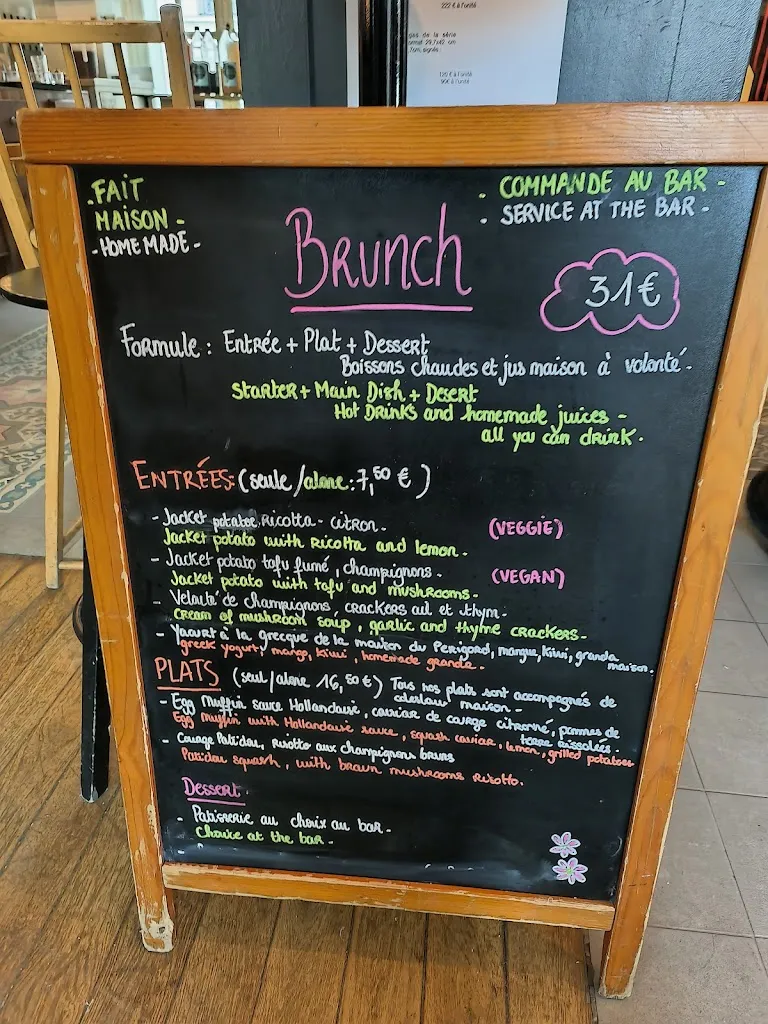 222 € à l'unité
gas de la série
ormat 29,7x42 cm
7cm, signés :
120 € à l'unité
90€ à l'unité
- FAIT
MAISON -
- HOME MADE -
- COMMANDE AU BAR -
- SERVICE AT THE BAR -
BRUNCH
31€
Formule : Entrée + Plat + Dessert
Boissons chaudes et jus maison à volonté.
Starter + Main Dish + Desert
Hot Drinks and homemade juices -
all you can drink.
ENTRÉES: (seule/alone : 7,50 €)
- Jacket potatoe, ricotta - citron. (VEGGIE)
Jacket potato with Ricotta and lemon.
- Jacket potato tofu fumé, champignons. (VEGAN)
Jacket potato with tofu and mushrooms.
- Velouté de champignons, crackers ail et thym.
cream of mushroom soup, garlic and thyme crackers-
- Yaourt à la grecque de la maison du Périgord, mangue, kiwi, granola
maison.
greek yogurt, mango, kiwi, homemade granola.
PLATS (seul/alone 16,50 €) Tous nos plats sont accompagnés de
coleslaw maison -
- Egg Muffin sauce Hollandaise, caviar de courge citronné, pommes de
terre rissolées.
Egg Muffin with Hollandaise sauce, squash caviar, lemon, grilled potatoes
- Courge Patidou, risotto aux champignons bruns
Patidou squash, with brown mushrooms risotto.
Dessert.
- Patisserie au choix au bar.
Choice at the bar -